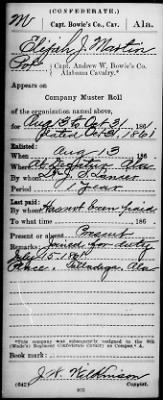 (CONFEDERATE.)
M Capt. Bowie's Co., Cav. Ala.
Elijah J. Martin
Pvt { Capt. Andrew W. Bowie's Co.
Alabama Cavalry.*
Appears on
Company Muster Roll
of the organization named above,
for Aug 13 to Oct 31, 186
dated Oct 31, 1861
Enlisted:
When Aug 13, 186
Where
By whom
Period 1 year
Last paid:
By whom Has not been paid
To what time , 186
Present or absent Present
Remarks: Joined for duty
July 15 1861
Talladega, Ala
*This company was subsequently assigned to the 8th
(Wade's) Regiment Confederate Cavalry as Company
Book mark:
J. W. Wilkinson
(642) Copyist.